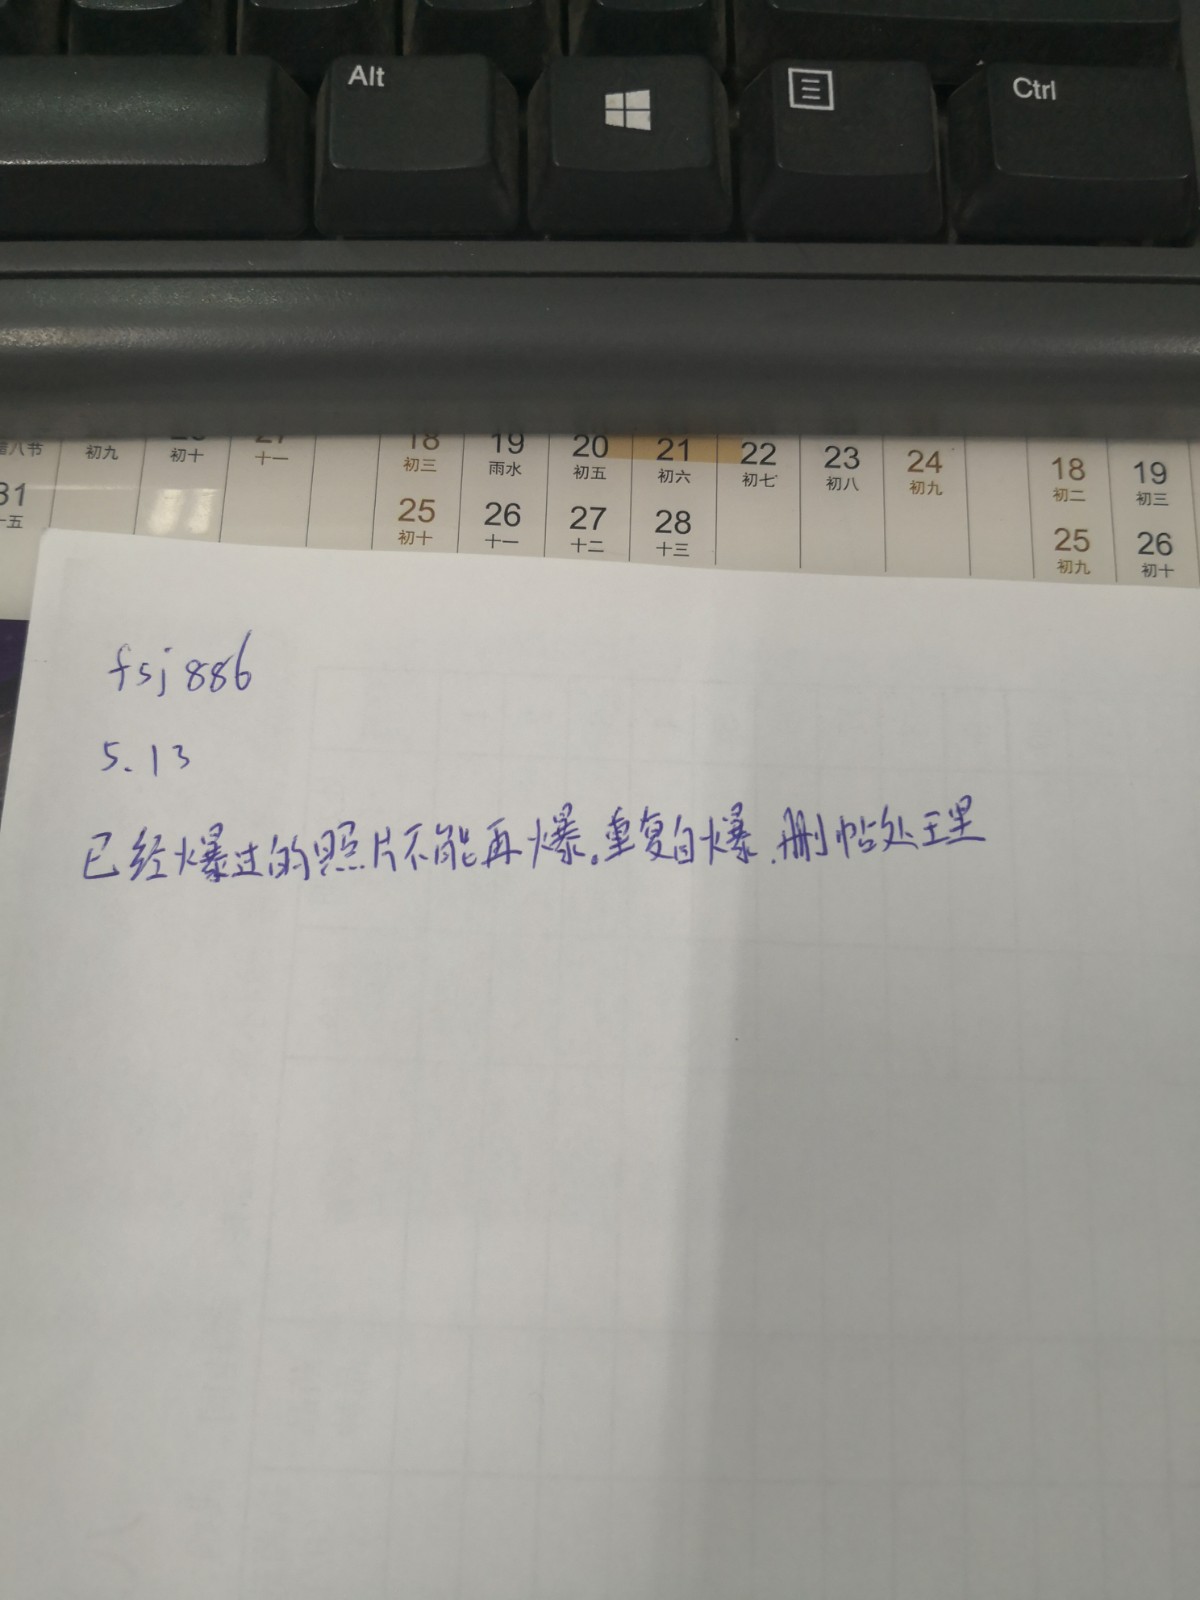 Alt
Ctrl
初九 初十 十一 18 19 20 21 22 23 24 18 19
初三 雨水 初五 初六 初七 初八 初九 初二 初三
31 25 26 27 28 25 26
十五 初十 十一 十二 十三 初九 初十
fsj886
5.13
已经爆过的照片不能再爆。重复自爆,删帖处理